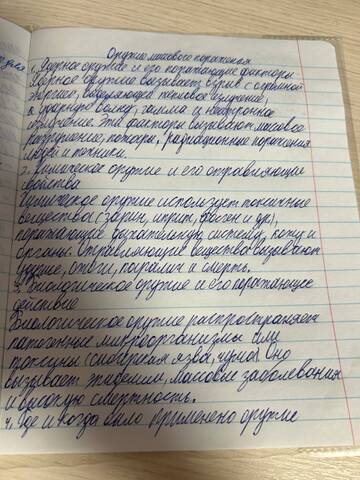 Оружие массового поражения
1. Ядерное оружие и его поражающие факторы
Ядерное оружие вызывает взрыв с огромной
энергией, выделяющей тепловое излучение,
ударную волну, гамма и нейтронное
излучение. Эти факторы вызывают массово
разрушение, пожары, радиационные поражения
людей и техники.
2. Химическое оружие и его отравляющая
свойства
Химическое оружие использует токсичные
вещества (зарин, иприт, фосген и др),
поражающие дыхательную систему, кожу и
органы. Отравляющие вещества вызывают
удушье, ожоги, паралич и смерть.
3. Биологическое оружие и его поражающее
действие
Биологическое оружие распространяет
патогенные микроорганизмы или
токсины (сибирская язва, чума). Оно
вызывает эпидемии, массовые заболевания
и высокую смертность.
4. Где и когда было применено оружие